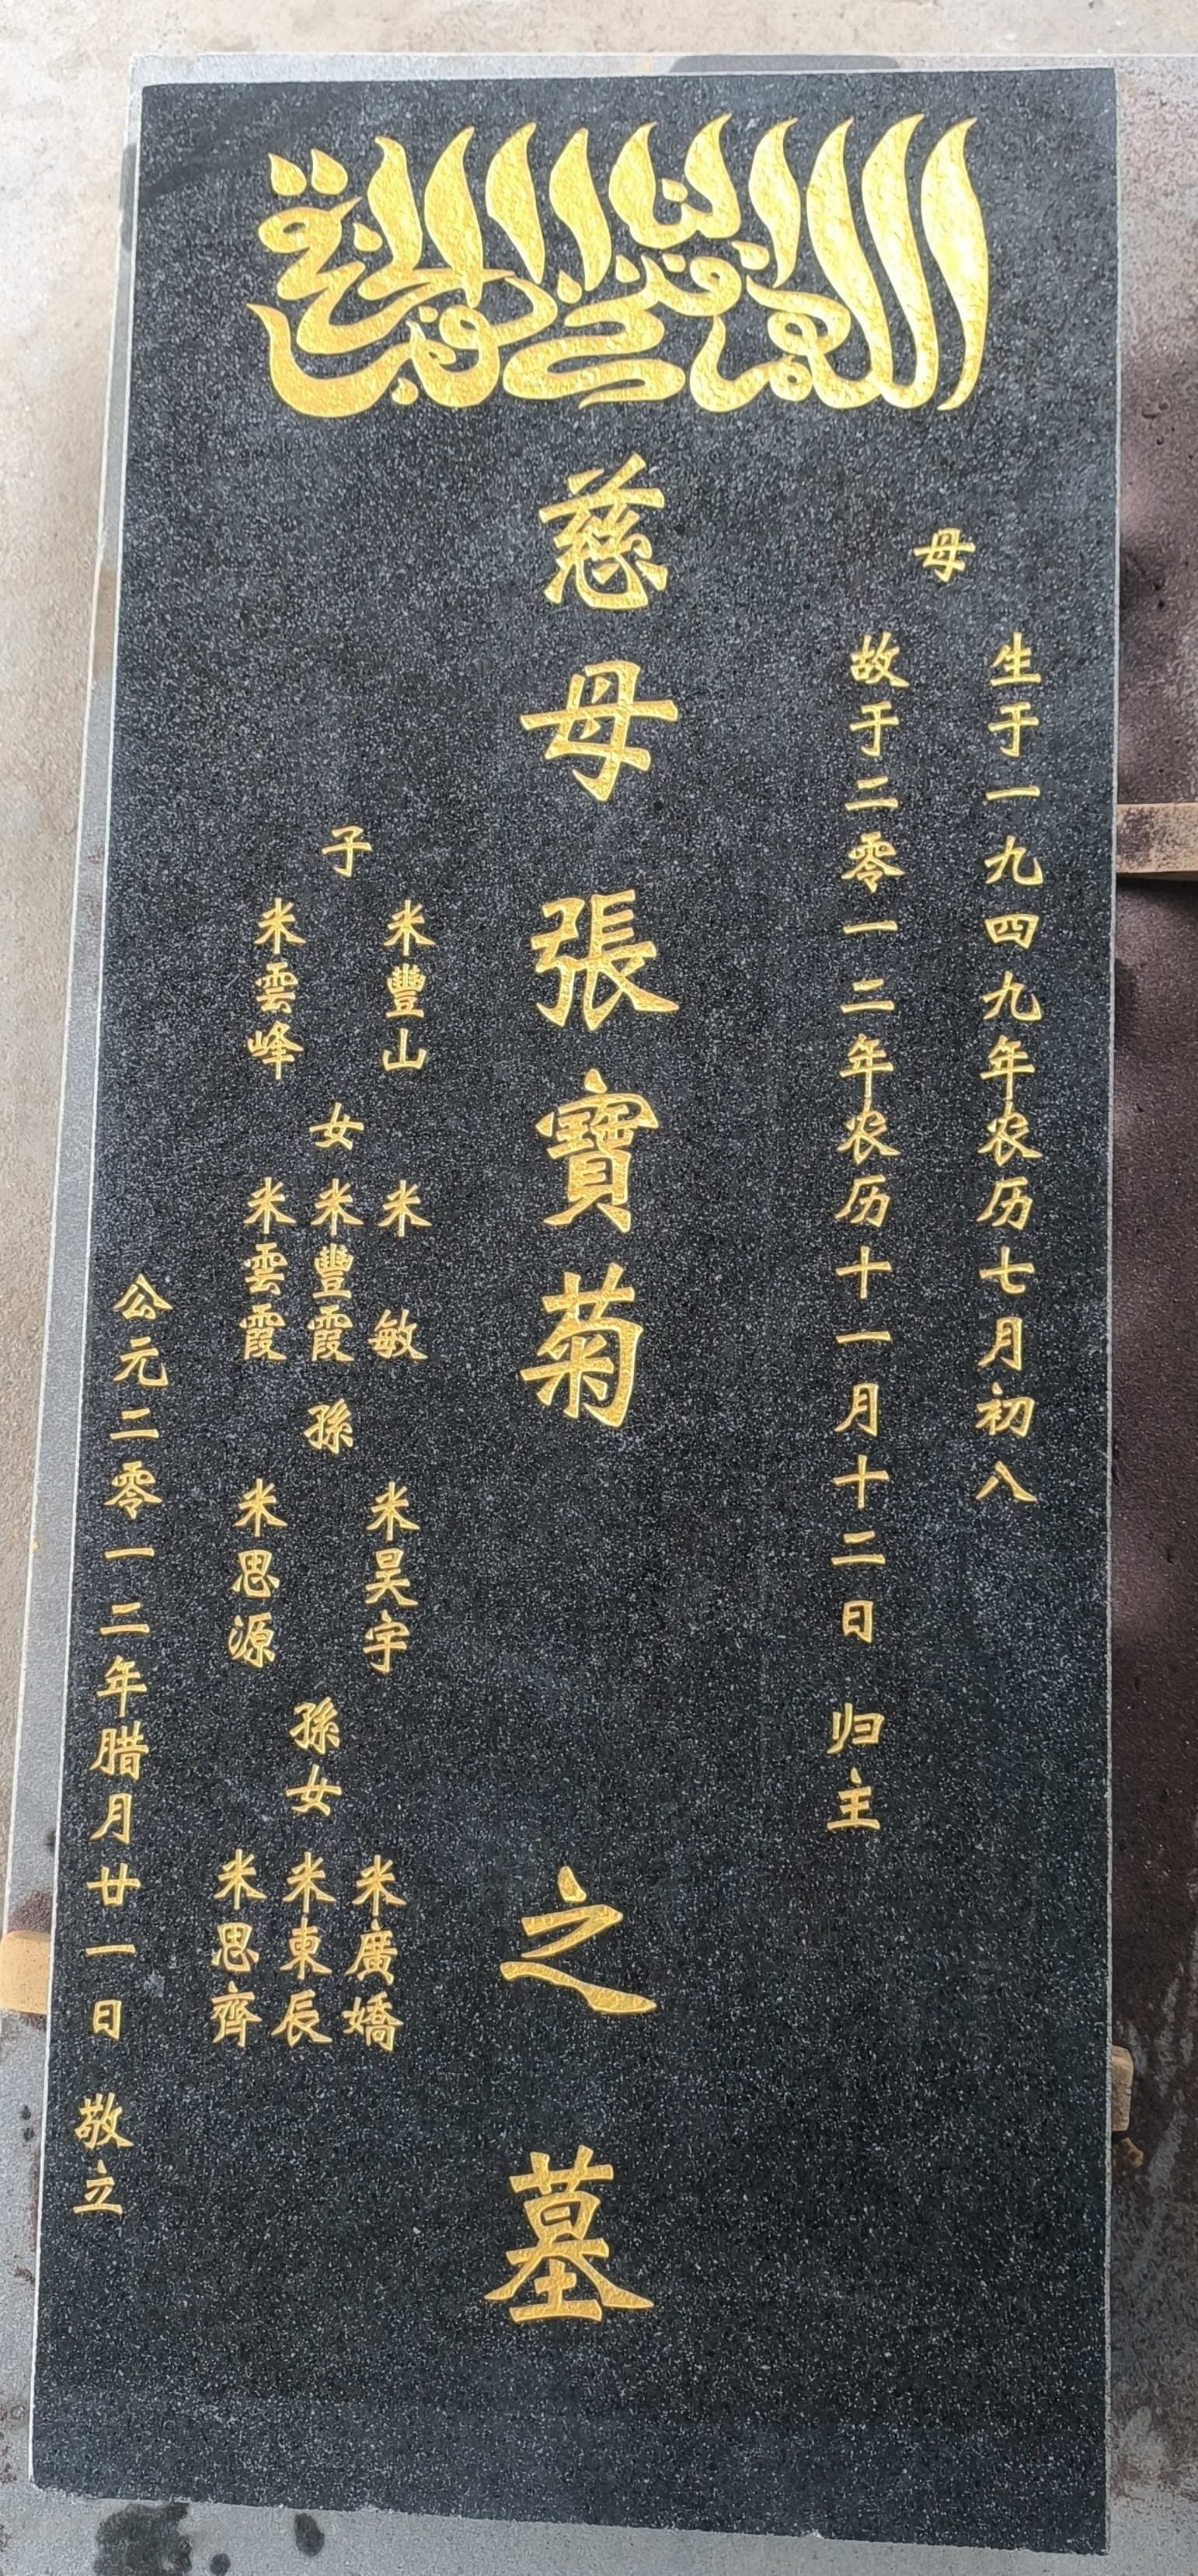 母
生于一九四九年农历七月初八
故于二零一二年农历十一月十二日 归主
慈母張寶菊之墓
子
米豐山
米雲峰
女
米敏
米豐霞
米雲霞
孫
米昊宇
米思源
孫女
米廣嬌
米東辰
米思齊
公元二零一二年腊月廿一日 敬立